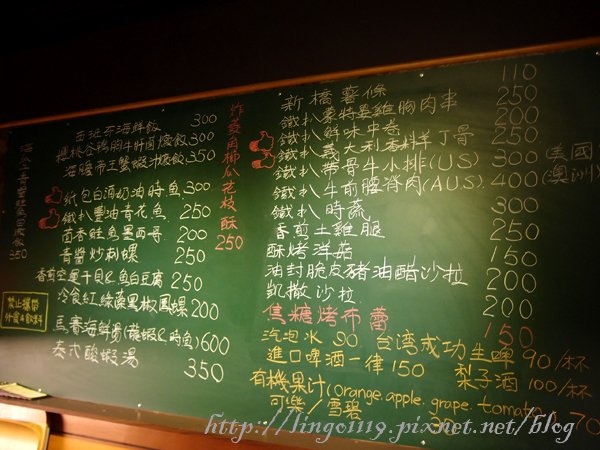 西班牙海鮮飯 300
櫻桃谷鴨胸牛肝菌燉飯 300
海膽帝王蟹蝦汁燉飯 350
紙包白酒奶油時魚 300
鐵扒醬油青花魚 250
茴香鮭魚墨西哥 200
青醬炒刺螺 250
香煎空運干貝&魚白豆腐 250
冷食紅綠蔬黑椒鳳螺 200
馬賽海鮮湯(龍蝦&時魚) 600
泰式酸蝦湯 350
350
禁止攜帶
外食&飲料
炸麥角椰瓜花枝酥
250
新橋薯條 110
鐵扒蒙特婁雞胸肉串 250
鐵扒鮮味中卷 200
鐵扒義大利香料羊丁哥 250
鐵扒帶骨牛小排(US) 300 (美國
鐵扒牛前腰脊肉(AUS) 400 (澳洲
鐵扒時蔬 300
香煎土雞腿 250
酥烤洋菇 150
油封脆皮豬油醋沙拉 200
凱撒沙拉 200
焦糖烤布蕾 150
汽泡水 90 台湾成功生啤 90/杯
進口啤酒一律 150 梨子酒 100/杯
有機果汁(orange.apple.grape.tomato
可樂/雪碧 70
http://lingo1119.pixnet.net/blog